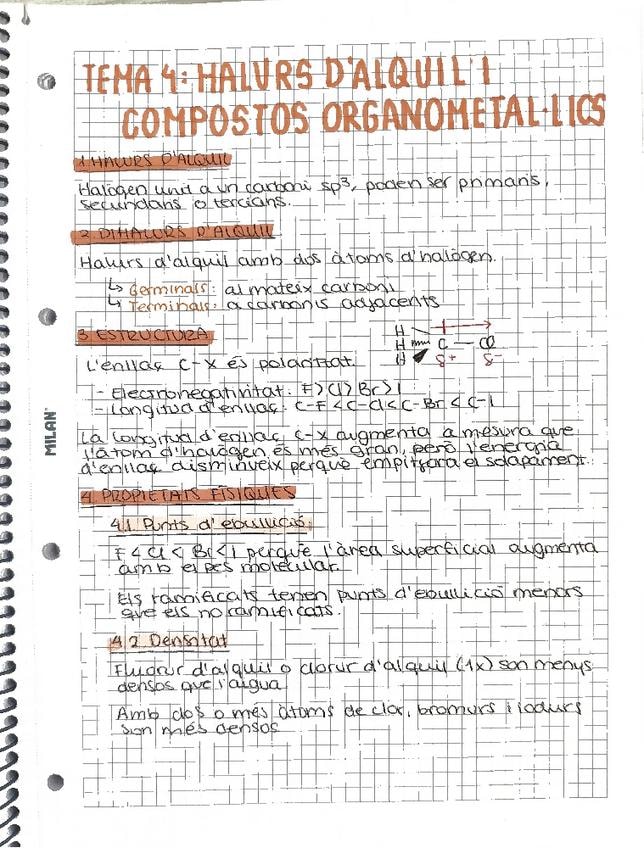 TEMA 4: HALURS D'ALQUIL I
COMPOSTOS ORGANOMETAL·LICS
1. HALURS D'ALQUIL
Halogen unit a un carboni sp³, poden ser primaris,
secundaris o terciaris.
2. DIHALURS D'ALQUIL
Halurs d'alquil amb dos àtoms d'halògen.
↳ Geminals: al mateix carboni
↳ Terminals: a carbonis adjacents
3. ESTRUCTURA
H
H C — Cl
H δ+ δ-
L'enllaç C-X és polaritzat.
- Electronegativitat: F>Cl>Br>I
- Longitud d'enllaç: C-F < C-Cl < C-Br < C-I
La longitud d'enllaç C-X augmenta a mesura que
l'àtom d'halògen és més gran, però l'energia
d'enllaç disminueix perque empitjora el solapament.
4. PROPIETATS FÍSIQUES
4.1. Punts d'ebullició.
F < Cl < Br < I perque l'àrea superficial augmenta
amb el pes molecular.
Els ramificats tenen punts d'ebullició menors
que els no ramificats.
4.2. Densitat
Fluorur d'alquil o clorur d'alquil (1x) son menys
densos que l'aigua
Amb dos o més àtoms de clor, bromurs i iodurs
son més densos
MILAN